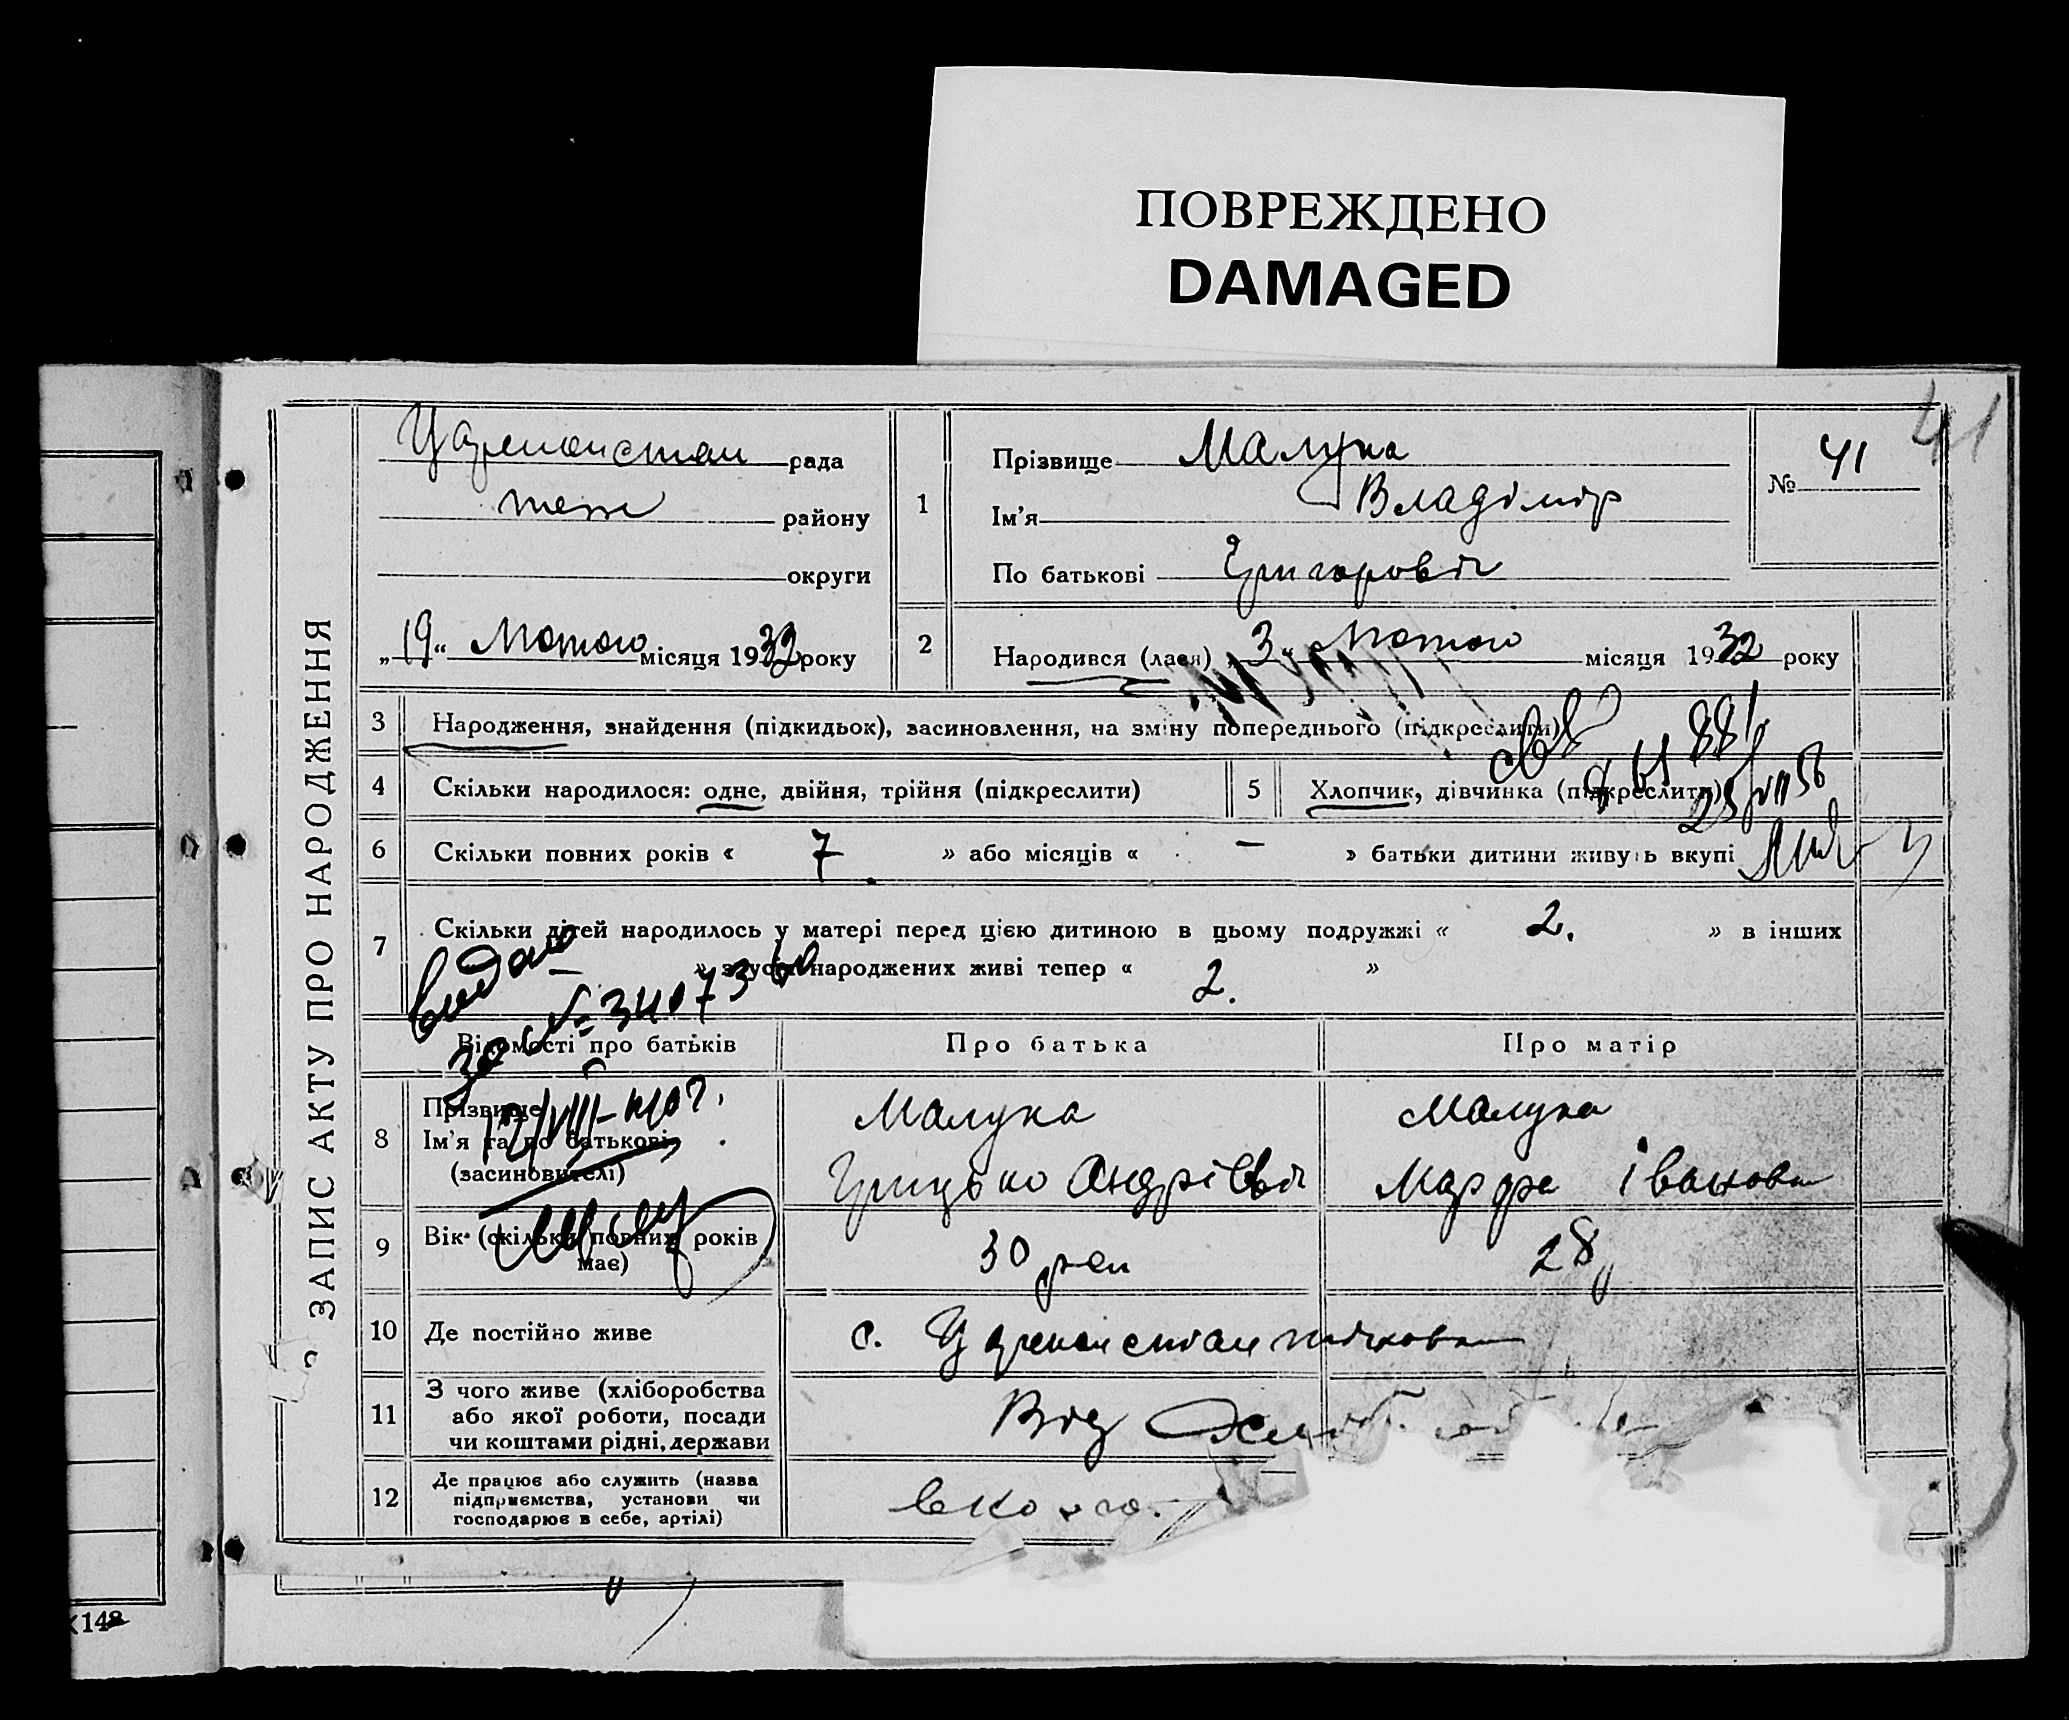 ПОВРЕЖДЕНО
DAMAGED
41
ЗАПИС АКТУ ПРО НАРОДЖЕННЯ
рада
теж району
округи
„19“ Лютого місяця 1932 року
1
Прізвище Малука
Ім'я Владімір
По батькові Григоровіч
№ 41
2
Народився (лася) „3“ Лютого місяця 1932 року
3 Народження, знайдення (підкидьок), засиновлення, на зміну попереднього (підкреслити)
4 Скільки народилося: одне, двійня, трійня (підкреслити)
5 Хлопчик, дівчинка (підкреслити)
6 Скільки повних років « 7 » або місяців « — » батьки дитини живуть вкупі
7 Скільки дітей народилось у матері перед цією дитиною в цьому подружжі « 2. » в інших
— » з усіх народжених живі тепер « 2. »
Відомості про батьків
Про батька
Про матір
8 Прізвище
Ім'я та по батькові
(засиновителі)
Малука
Грицько Андрієвіч
Малука
Марфа Іванова
9 Вік (скільки повних років
має)
30 рок
28
10 Де постійно живе
с.
11 З чого живе (хліборобства
або якої роботи, посади
чи коштами рідні, держави
Від
12 Де працює або служить (назва
підприємства, установи чи
господарює в себе, артілі)